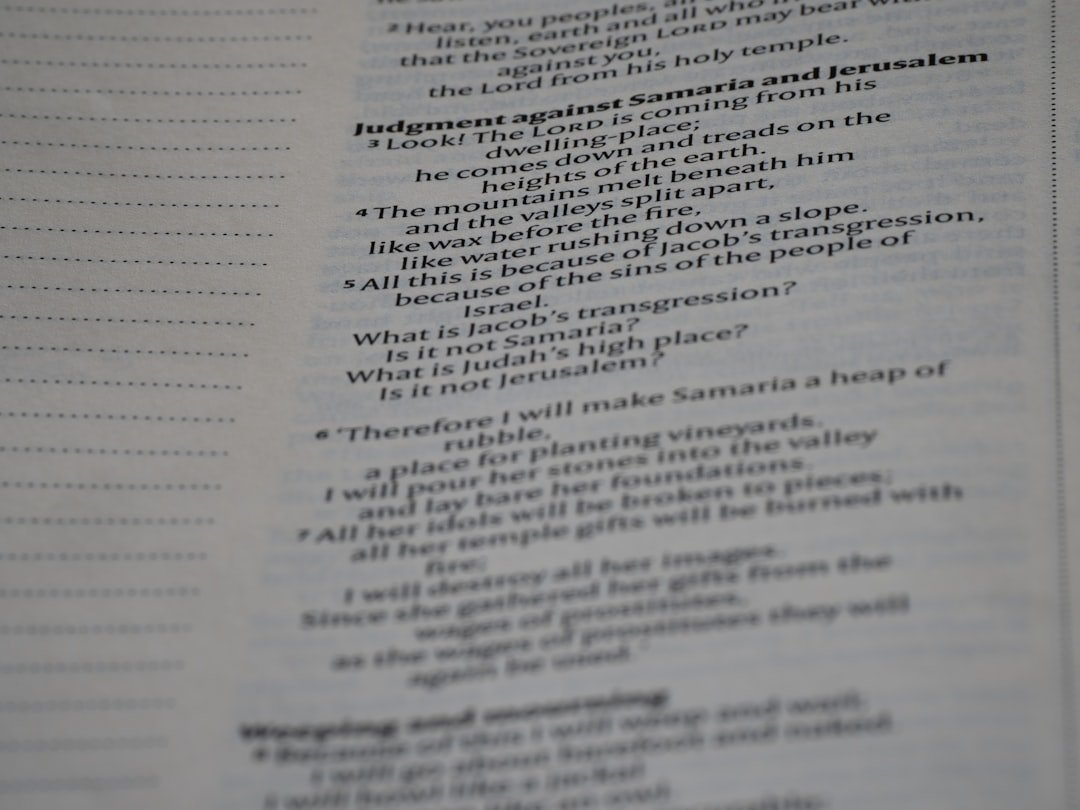 2 Hear, you peoples, all
listen, earth and all who
that the Sovereign LORD may bear
against you,
the Lord from his holy temple.
Judgment against Samaria and Jerusalem
3 Look! The LORD is coming from his
dwelling-place;
he comes down and treads on the
heights of the earth.
4 The mountains melt beneath him
and the valleys split apart,
like wax before the fire,
like water rushing down a slope.
5 All this is because of Jacob’s transgression,
because of the sins of the people of
Israel.
What is Jacob’s transgression?
Is it not Samaria?
What is Judah’s high place?
Is it not Jerusalem?
6 ‘Therefore I will make Samaria a heap of
rubble,
a place for planting vineyards.
I will pour her stones into the valley
and lay bare her foundations.
7 All her idols will be broken to pieces;
all her temple gifts will be burned with
fire;
I will destroy all her images.
Since she gathered her gifts from the
wages of prostitutes,
as the wages of prostitutes they will
again be used.’
Weeping and mourning
8 Because of this I will weep and wail;
I will go about barefoot and naked.
I will howl like a jackal